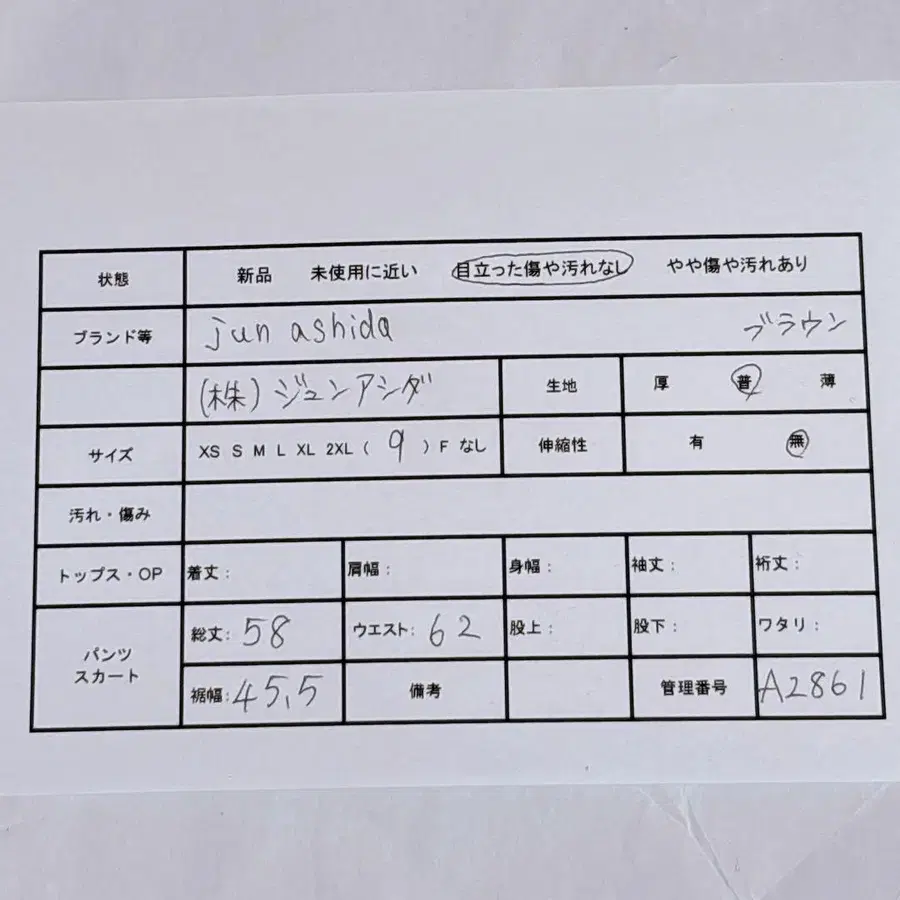 状態 新品 未使用に近い 目立った傷や汚れなし やや傷や汚れあり
ブランド等 jun ashida ブラウン
(株)ジュンアシダ 生地 厚 普 薄
サイズ XS S M L XL 2XL ( 9 ) F なし 伸縮性 有 無
汚れ・傷み
トップス・OP 着丈: 肩幅: 身幅: 袖丈: 裄丈:
パンツ スカート 総丈: 58 ウエスト: 62 股上: 股下: ワタリ:
裾幅: 45,5 備考 管理番号 A2861